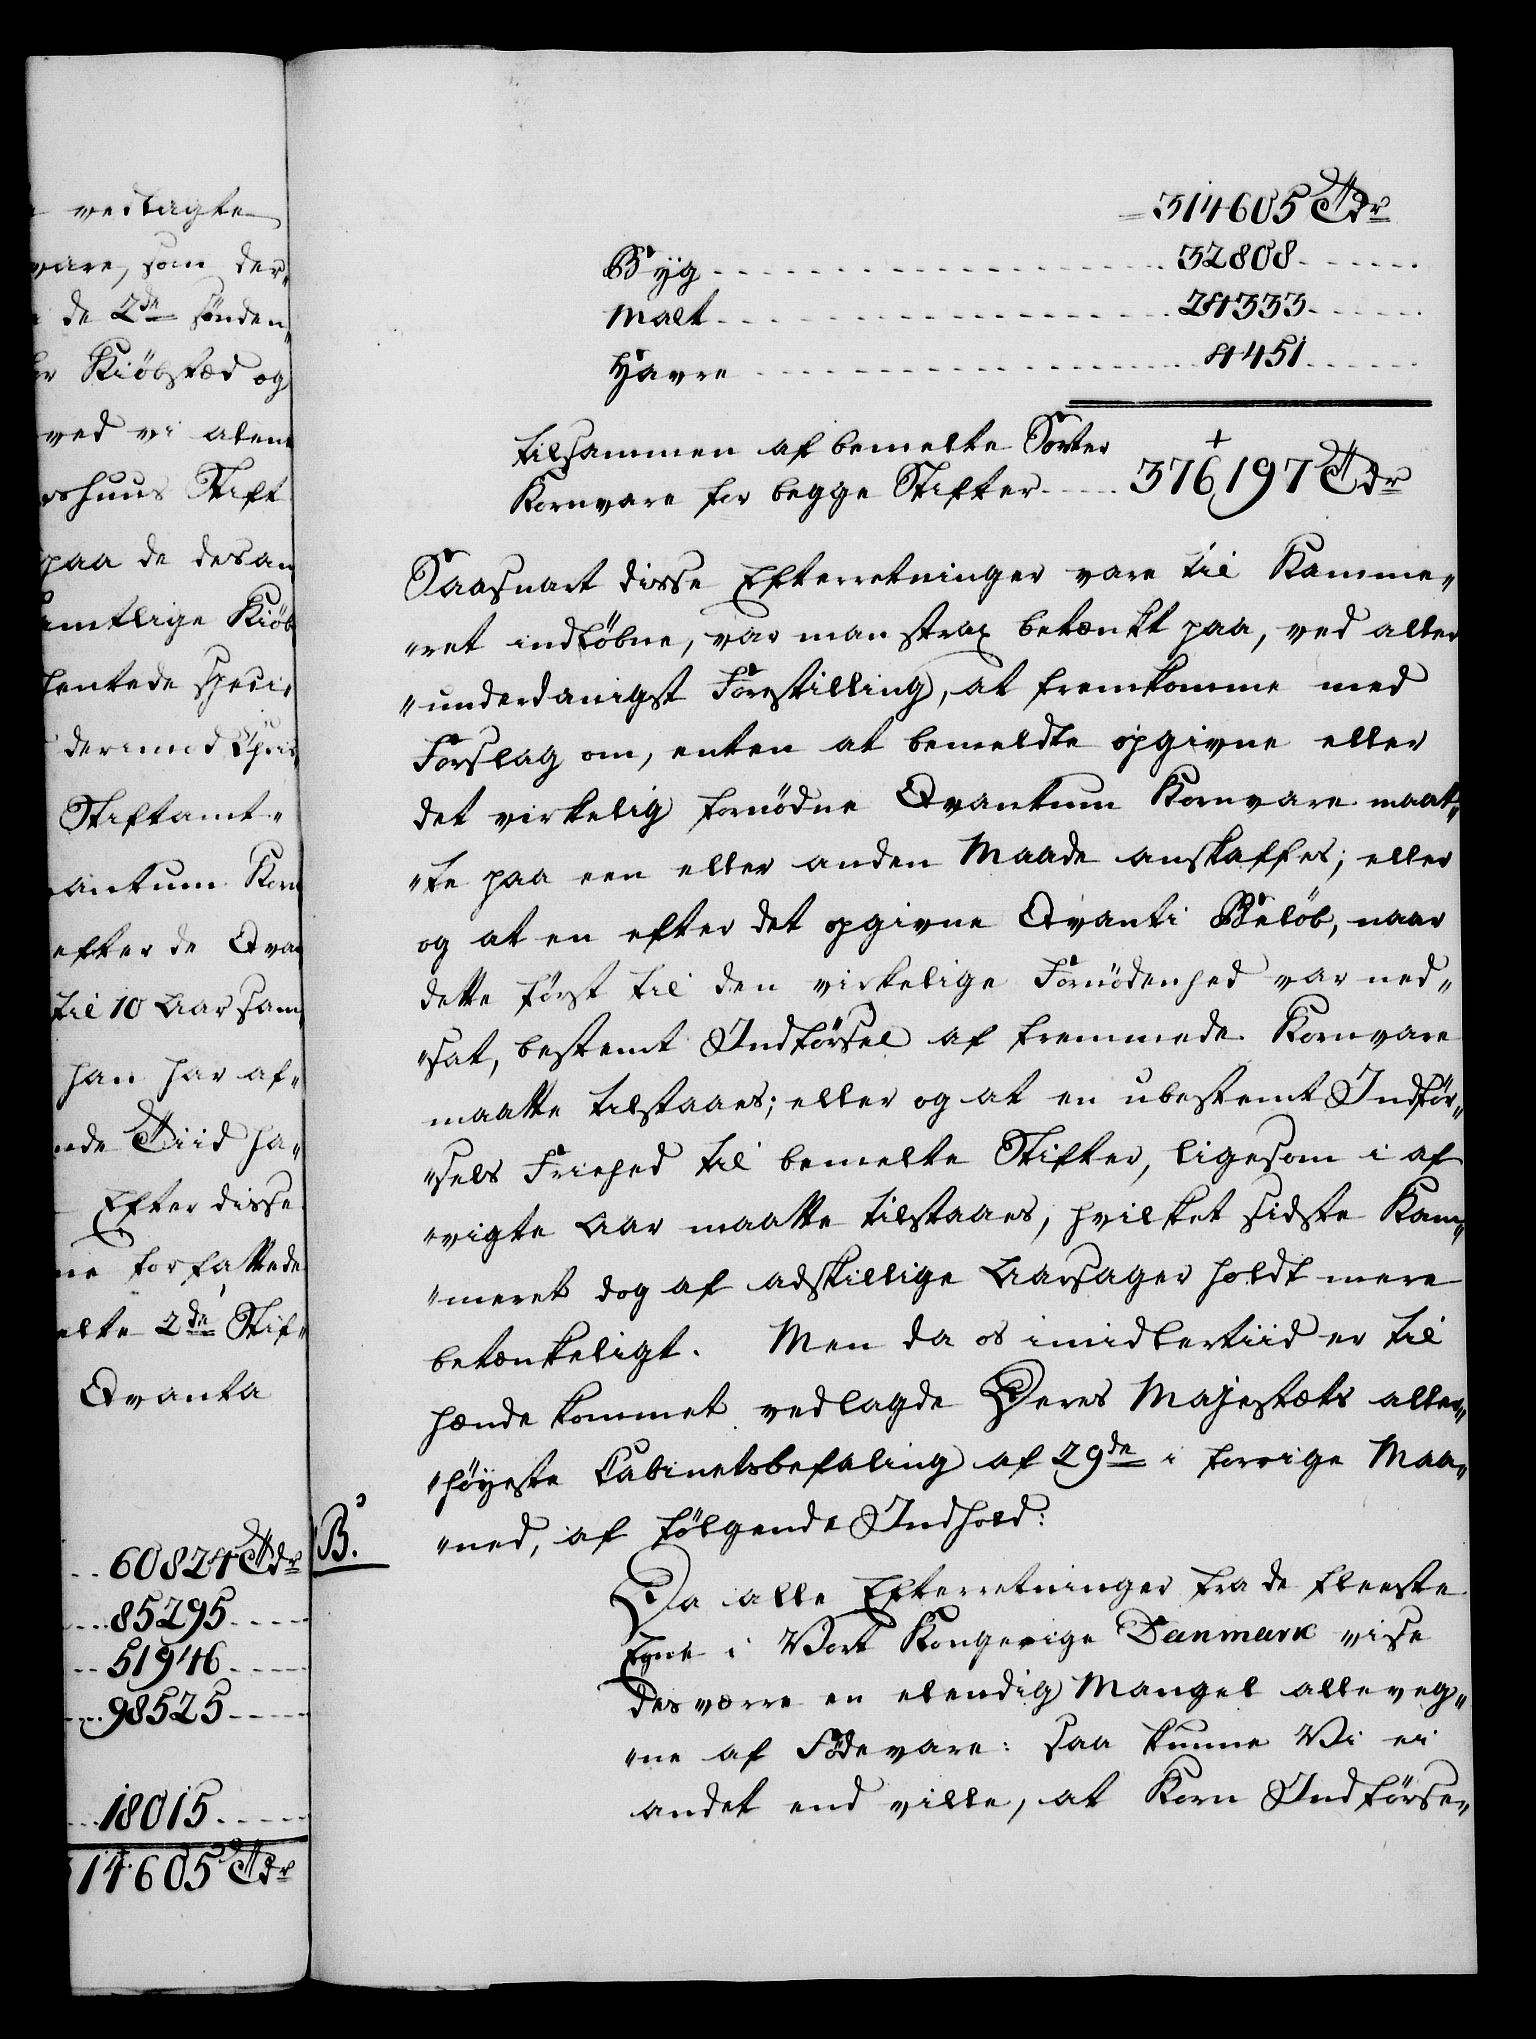 vedtagte
vare, som der„
de 2de sönden„
Kiöbstæd og
ved vi alene
rshuus Stift
paa de desan
amtlige Kiöb
hentede speci„
derimod
Stiftamt„
antum Korn
efter de Qvan
til 10 Aar sam„
han har af„
nde Tiid ha„
Efter disse
ne forfattede
elte 2de Stif„
Qvanta
60824 Tdr
85295
51946
98525
18015
14605 Tdr
314605 Tdr
Byg 32808
Malt 24333
Havre 4451
tilsammen af bemelte Sorter
Kornvare for begge Stifter 376,197 Tdr
Saasnart disse Efterretninger vare til Kamme„
„ret indløbne, var man strax betænkt paa, ved aller
„underdanigst Forestilling, at fremkomme med
Forslag om, enten at bemeldte opgivne eller
det virkelig fornödne Qvantum Kornvare maat„
„te paa een eller anden Maade anskaffes; eller
og at en efter det opgivne Qvanti Belöb, naar
dette först til den virkelige Fornödenhed var ned„
„sat, bestemt Indförsel af fremmede Kornvare
maatte tilstaaes; eller og at en ubestemt Indför„
„sels Friehed til bemelte Stifter, ligesom i af
„vigte Aar maatte tilstaaes, hvilket sidste Kam„
„meret dog af adskillige Aarsager holdt mere
betænkeligt. Men da os imidlertiid er til
hænde kommet vedlagde Deres Majestæts aller„
„höyeste Cabinetsbefaling af 29de i forrige Maa„
„ned, af fölgende Indhold:
B.
Da alle Efterretninger fra de fleeste
Egne i Vort Kongerige Danmark vise
desværre en elendig Mangel alleveg„
„ne af Födevare: saa kunne Vi ei
andet end ville, at Korn Indförse„